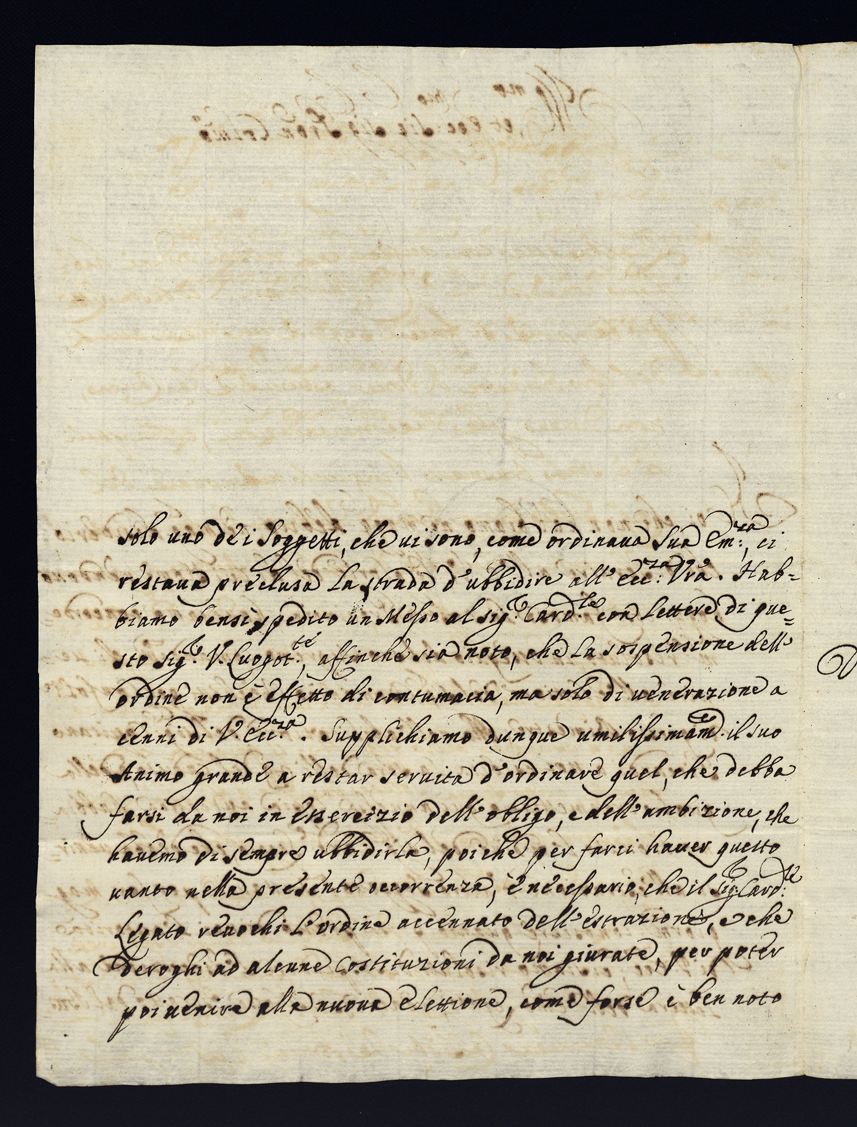 solo uno de i Soggetti, che vi sono, come ordinava Sua Em:za, ci
restava preclusa la strada d'ubbidire all'Ecc:za Vra. Hab=
biamo bensi spedito un Messo al sig.r Card.le con lettere di que=
sto sig.r V. Luogot.te, affinchè sia noto, che la sospensione dell'
ordine non è effetto di contumacia, ma solo di venerazione a
cenni di V. Ecc.za. Supplichiamo dunque umilissimam.te il suo
Animo grande a restar servita d'ordinare quel, che debba
farsi da noi in essercizio dell'obligo, e dell'ambizione, che
havemo di sempre ubbidirla, poiche per farci haver questo
vanto nella presente occorrenza, è necessario, che il sig.r Card:le
Legato revochi l'ordine accennato dell'estrazione, e che
deroghi ad alcune Costituzioni da noi giurate, per poter
poi venire alla nuova elettione, come forse è ben noto